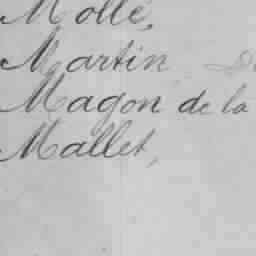 Mollé,
Martin
Magon de la
Mallet,